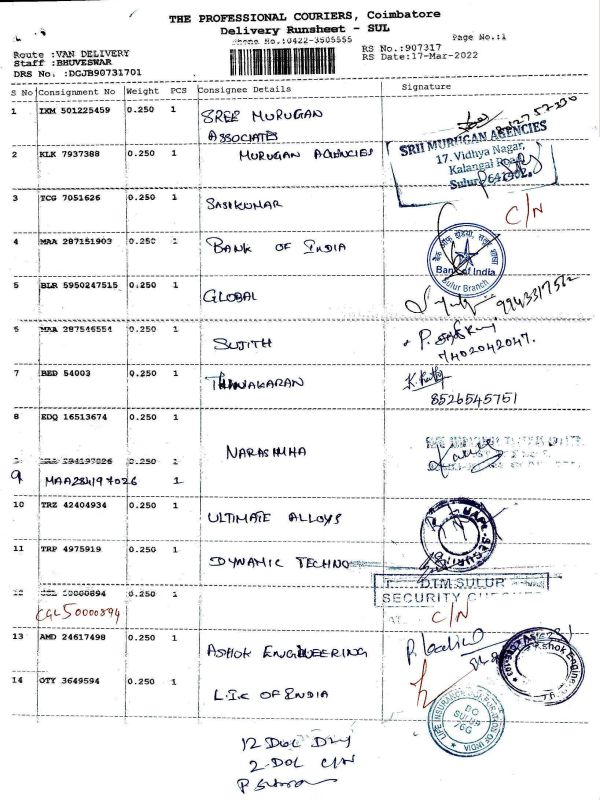 THE PROFESSIONAL COURIERS, Coimbatore
Delivery Runsheet - SUL
Phone No.:0422-3505555
Page No.:1
Route :VAN DELIVERY
Staff :BHUVESWAR
DRS No. :DGJB90731701
RS No.:907317
RS Date:17-Mar-2022
S No Consignment No Weight PCS Consignee Details Signature
1 IXM 501225459 0.250 1 SREE MURUGAN
ASSOCIATES
2 KLK 7937388 0.250 1 MURUGAN AGENCIES
SRII MURUGAN AGENCIES
17, Vidhya Nagar,
Kalangal Road,
Sulur-641402.
3 TCG 7051626 0.250 1 SASIKUMAR C/N
4 MAA 287151903 0.250 1 BANK OF INDIA
Bank of India
Sulur Branch
5 BLR 5950247515 0.250 1 GLOBAL
9943317512
6 MAA 287546554 0.250 1 SUJITH
7402042047.
7 BED 54003 0.250 1 THINAKARAN
8526545751
8 EDQ 16513674 0.250 1
NARASIMHA
9 MAA 284197026 0.250 1
9 MAA284197026 1
10 TRZ 42404934 0.250 1 ULTIMATE ALLOYS
SECURITY
11 TRP 4975919 0.250 1 DYNAMIC TECHNO
DTM SULUR
SECURITY
12 CGL 50000894 0.250 1
CGL50000894 C/N
13 AMD 24617498 0.250 1 ASHOK ENGINEERING
14 OTY 3649594 0.250 1 L.I.C OF INDIA
LIFE INSURANCE CORPORATION OF INDIA
BO
SULUR
76G
12 Doc Dly
2 Doc C/N